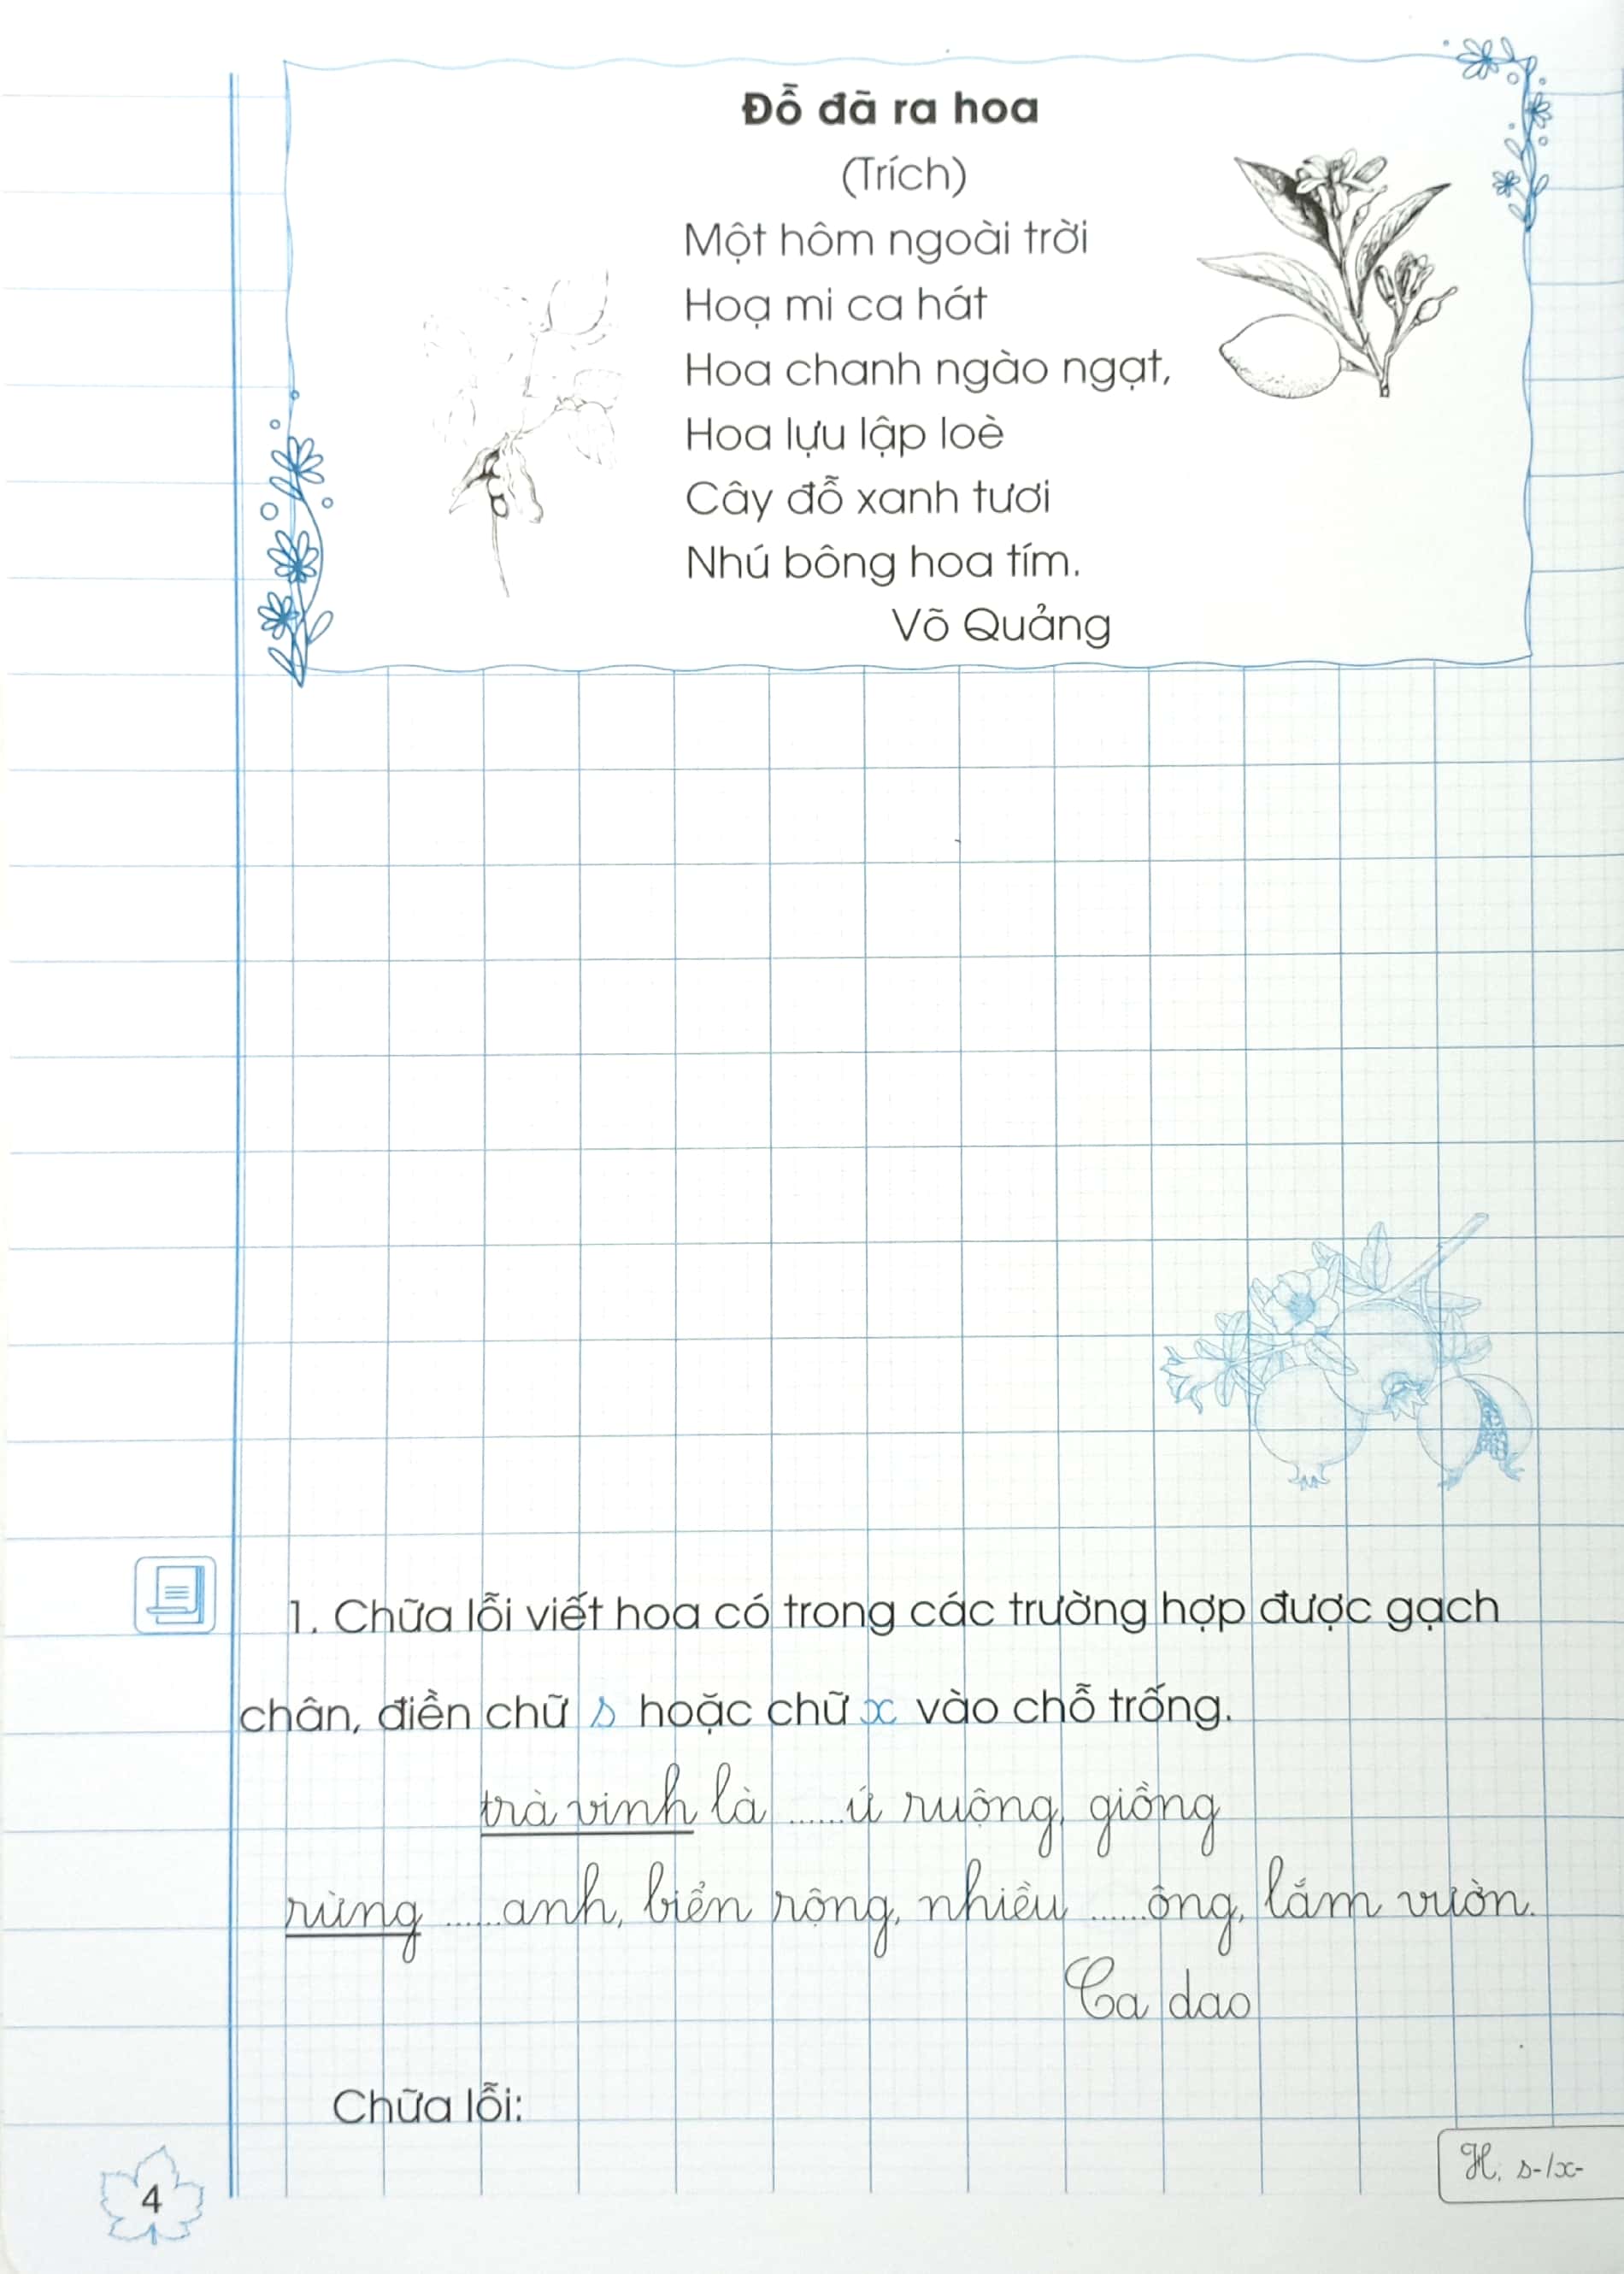 Đỗ đã ra hoa
(Trích)
Một hôm ngoài trời
Hoạ mi ca hát
Hoa chanh ngào ngạt,
Hoa lựu lập loè
Cây đỗ xanh tươi
Nhú bông hoa tím.
Võ Quảng
1. Chữa lỗi viết hoa có trong các trường hợp được gạch
chân, điền chữ s hoặc chữ x vào chỗ trống.
trà vinh là ......ứ ruộng, giồng
rừng ......anh, biển rộng, nhiều ......ông, lắm vườn.
Ca dao
Chữa lỗi:
4
H, s-/x-